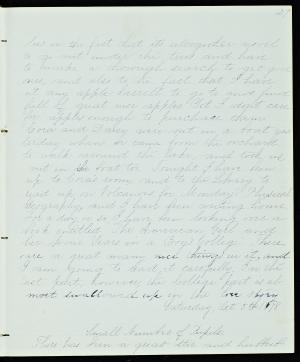 lies in the fact that its altogether novel
to go out under the trees and have
to make a thorough search to get good
one, and also to the fact that I have
not any apple barrels to go to and find
full of great nice apples. But I don't care
for apples enough to purchase them.
Cora and Daisy were out in a boat yes-
terday when we came from the orchard
to walk around the lake, and took us
out in the boat too. Tonight I have been
up to Cora's room and to the Library to
read up on Volcanoes for Monday's Physical
Geography, and I have been writing home.
For a day or so I have been looking over a
book entitled The American Girl and
her Four Years in a Boys' College. There
are a great many nice things in it, and
I am going to read it carefully. In the
last part, however, the College part is al-
most swallowed up in the love story.
Saturday, Oct 5th 1878
Small Number of Pupils.
There has been a great stir and